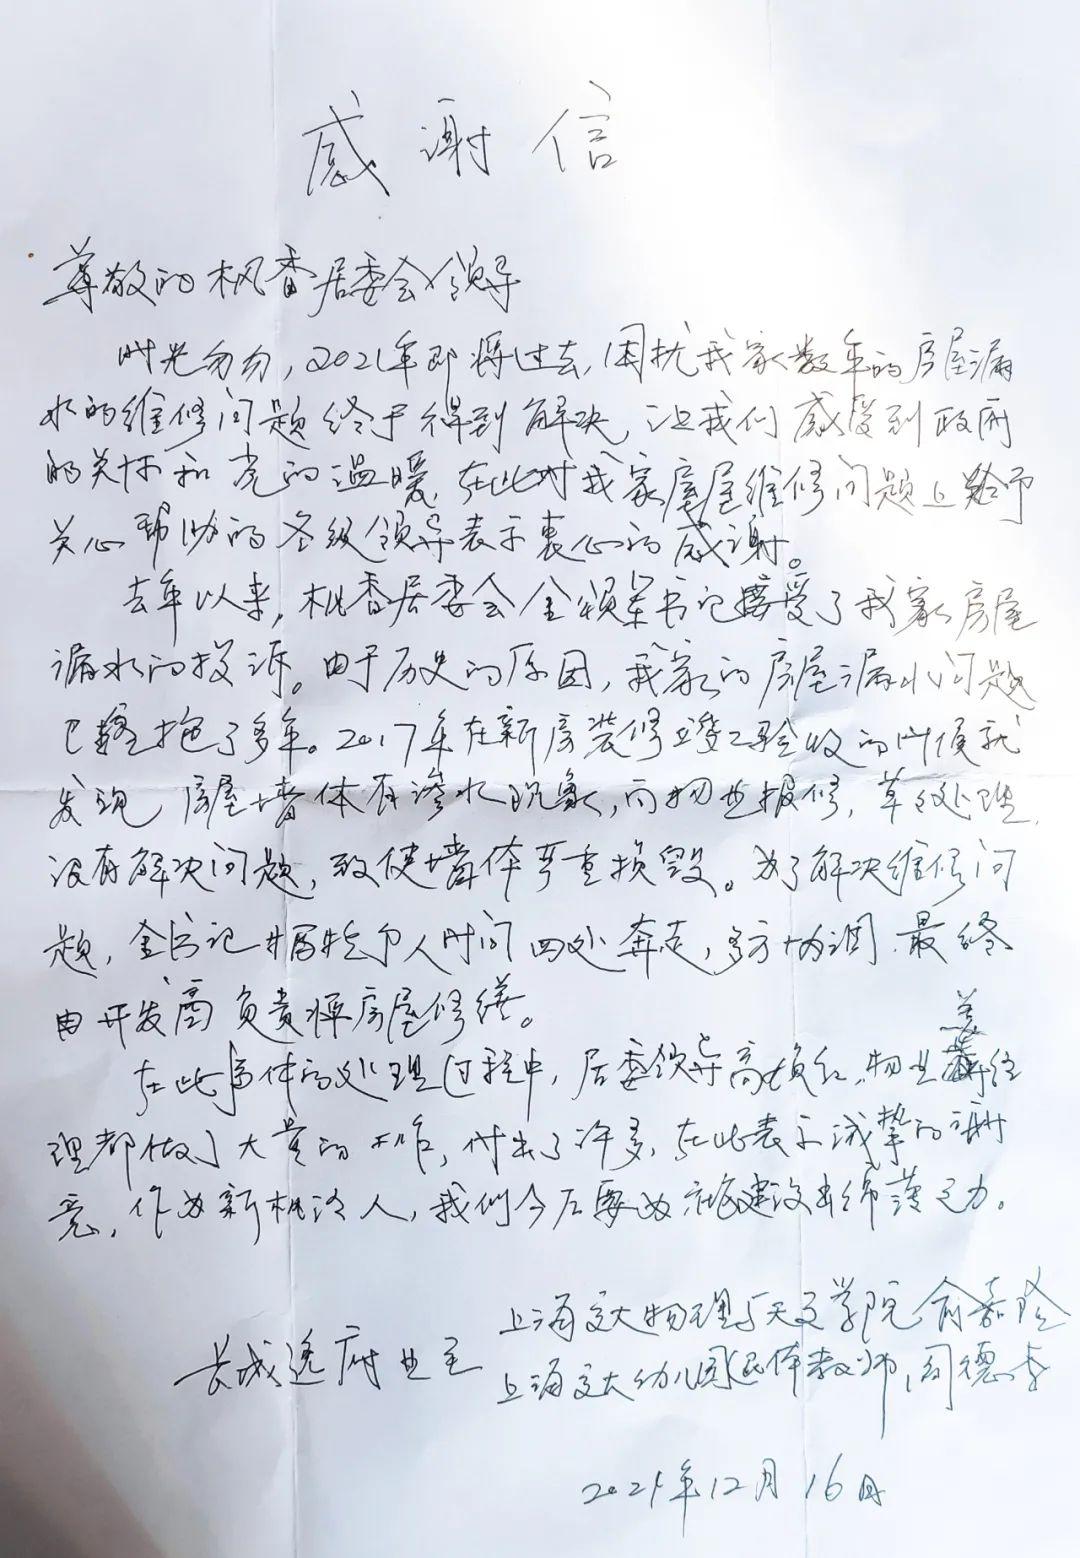 感谢信
尊敬的枫香居委会领导
时光匆匆，2021年即将过去，困扰我家数年的房屋漏
水的维修问题终于得到解决，让我们感受到政府
的关怀和党的温暖，在此对我家房屋维修问题上给予
关心帮助的各级领导表示衷心的感谢。
去年以来，枫香居委会金书记接受了我家房屋
漏水的投诉。由于历史的原因，我家的房屋漏水问题
已拖了多年。2017年在新房装修竣工验收的时候就
发现房屋墙体有渗水现象，而物业报修，草草处理，
没有解决问题，致使墙体严重损毁。为了解决维修问
题，金书记牺牲个人时间四处奔走，多方协调，最终
由开发商负责将房屋修缮。
在此事件的处理过程中，居委领导高，物业姜经
理都做了大量的工作，付出了许多，在此表示诚挚的谢
意，作为新枫泾人，我们今后要为社区建设出绵薄之力。
上海交大物理与天文学院 俞嘉隆
长城逸府业主
上海交大幼儿园退休教师，周德
2021年12月16日